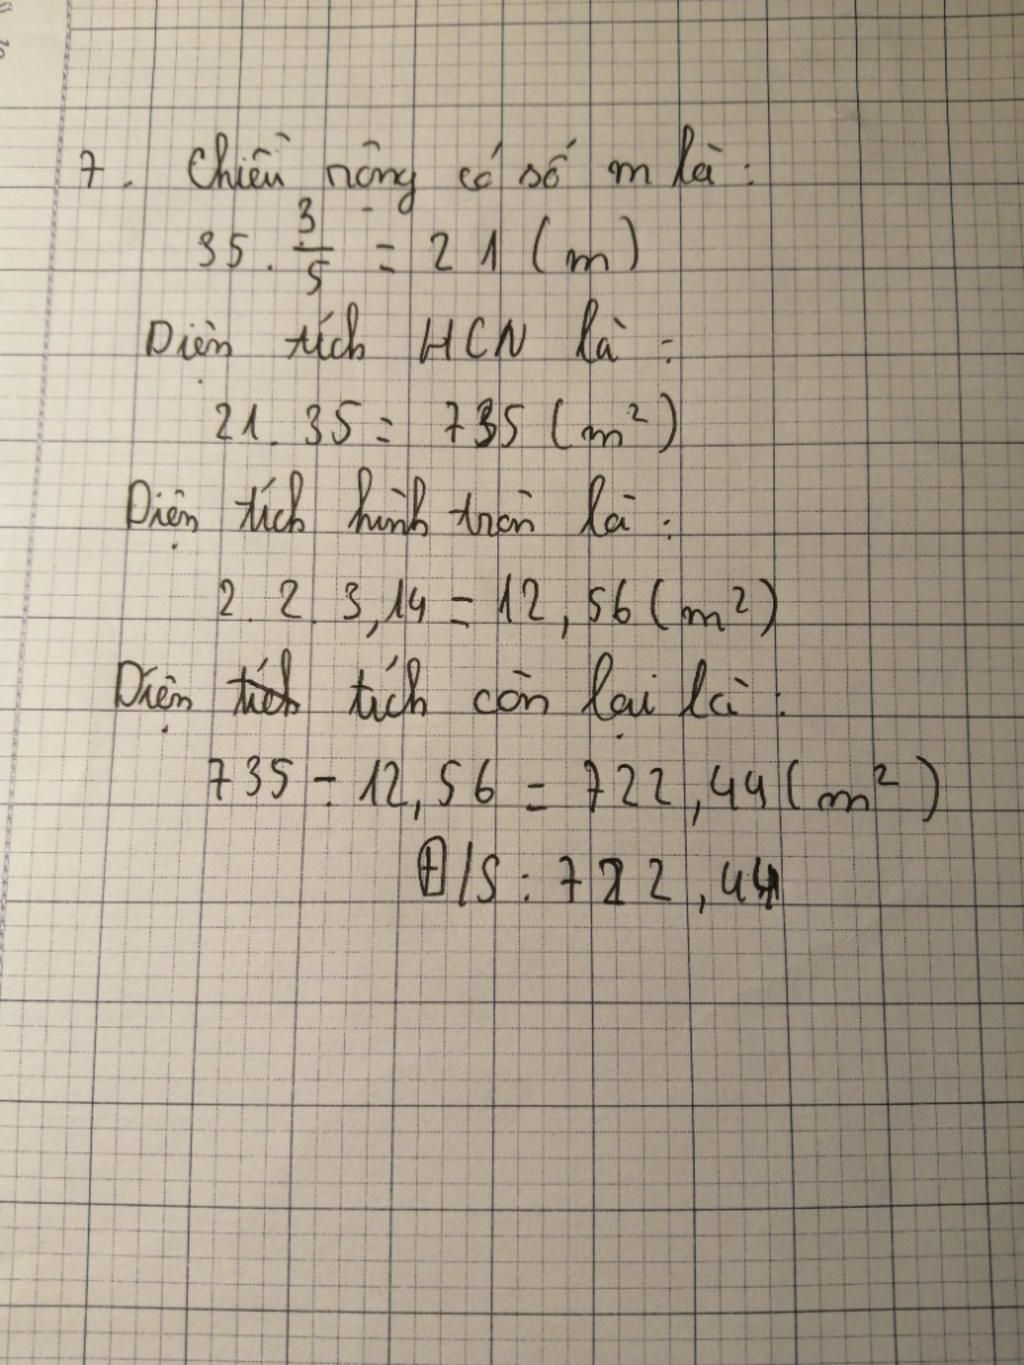 7. Chiều rộng có số m là:
35. 3/5 = 21 (m)
Diện tích HCN là:
21. 35 = 735 (m²)
Diện tích hình tròn là:
2. 2. 3,14 = 12,56 (m²)
Diện tích tích còn lại là:
735 - 12,56 = 722,44 (m²)
Đ/S: 722,44